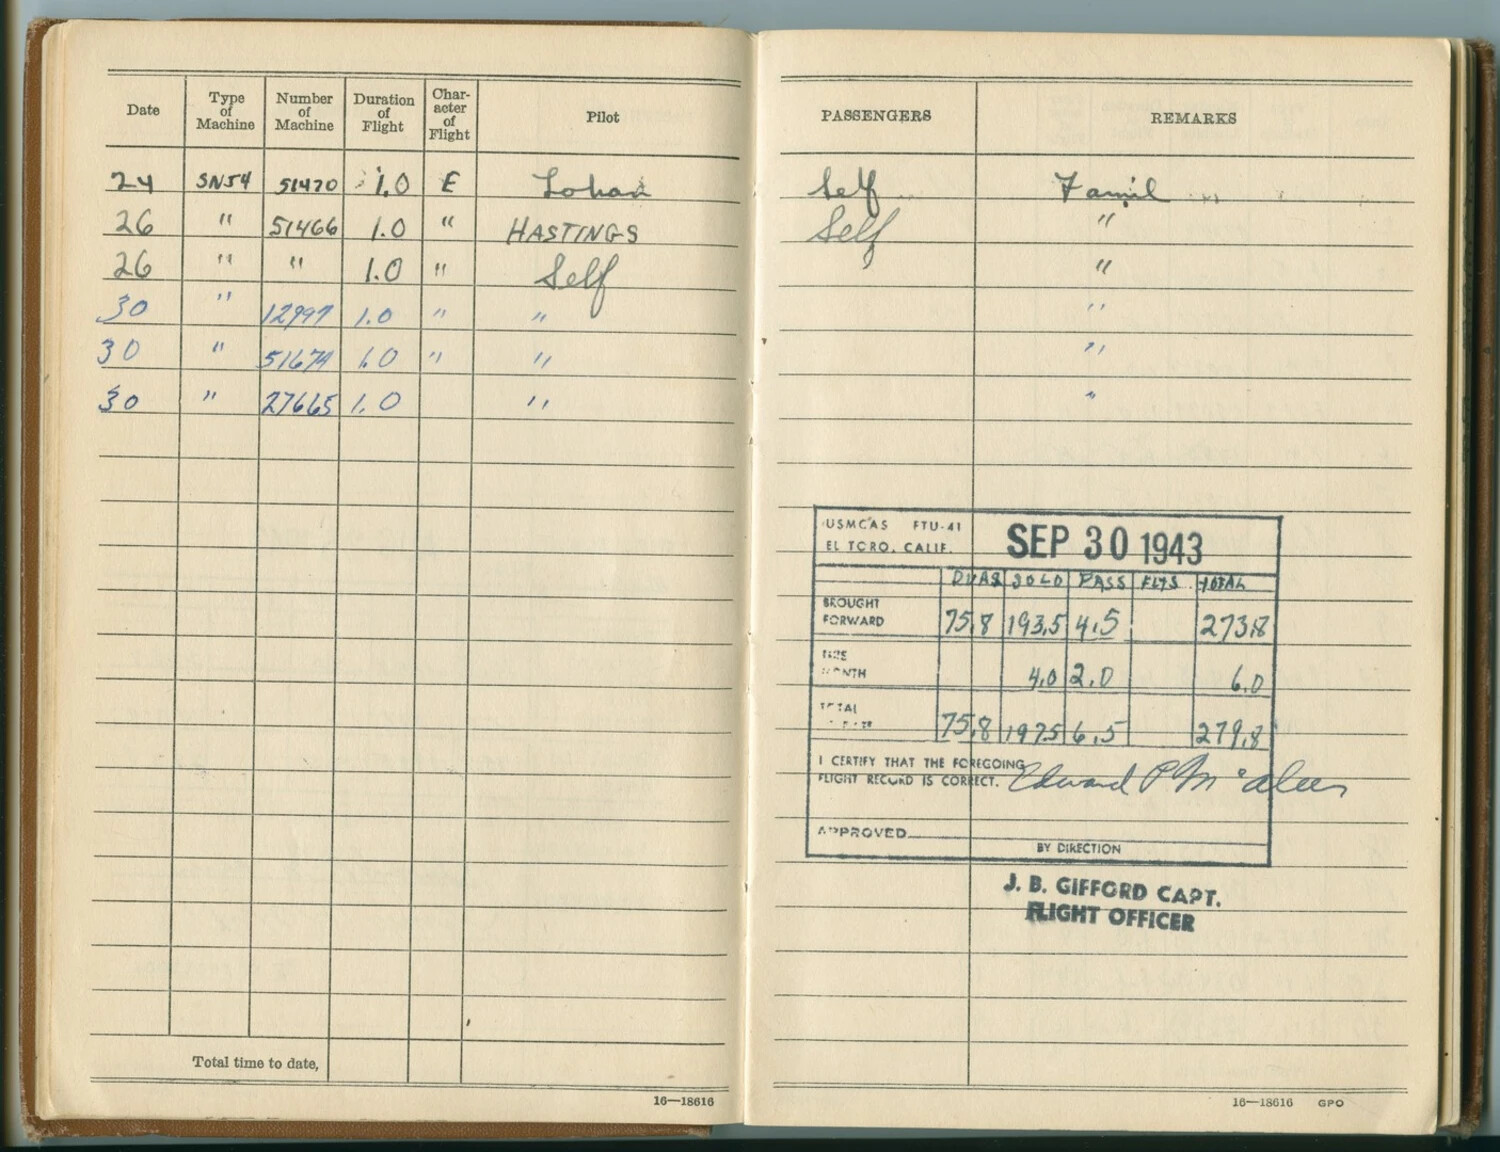 Date Type of Machine Number of Machine Duration of Flight Char-acter of Flight Pilot PASSENGERS REMARKS
24 SNJ4 51470 1.0 E Lohan Self Famil
26 " 51466 1.0 " HASTINGS Self "
26 " " 1.0 " Self "
30 " 12997 1.0 " " "
30 " 51674 1.0 " " "
30 " 27665 1.0 " "
USMCAS FTU-41 SEP 30 1943
EL TORO, CALIF.
DUAL SOLO PASS FLTS TOTAL
BROUGHT FORWARD 75.8 193.5 4.5 273.8
THIS MONTH 4.0 2.0 6.0
TOTAL 75.8 197.5 6.5 279.8
I CERTIFY THAT THE FOREGOING
FLIGHT RECORD IS CORRECT. Edward P McAleer
APPROVED
BY DIRECTION
J. B. GIFFORD CAPT.
FLIGHT OFFICER
Total time to date,
16—18616 16—18616 GPO